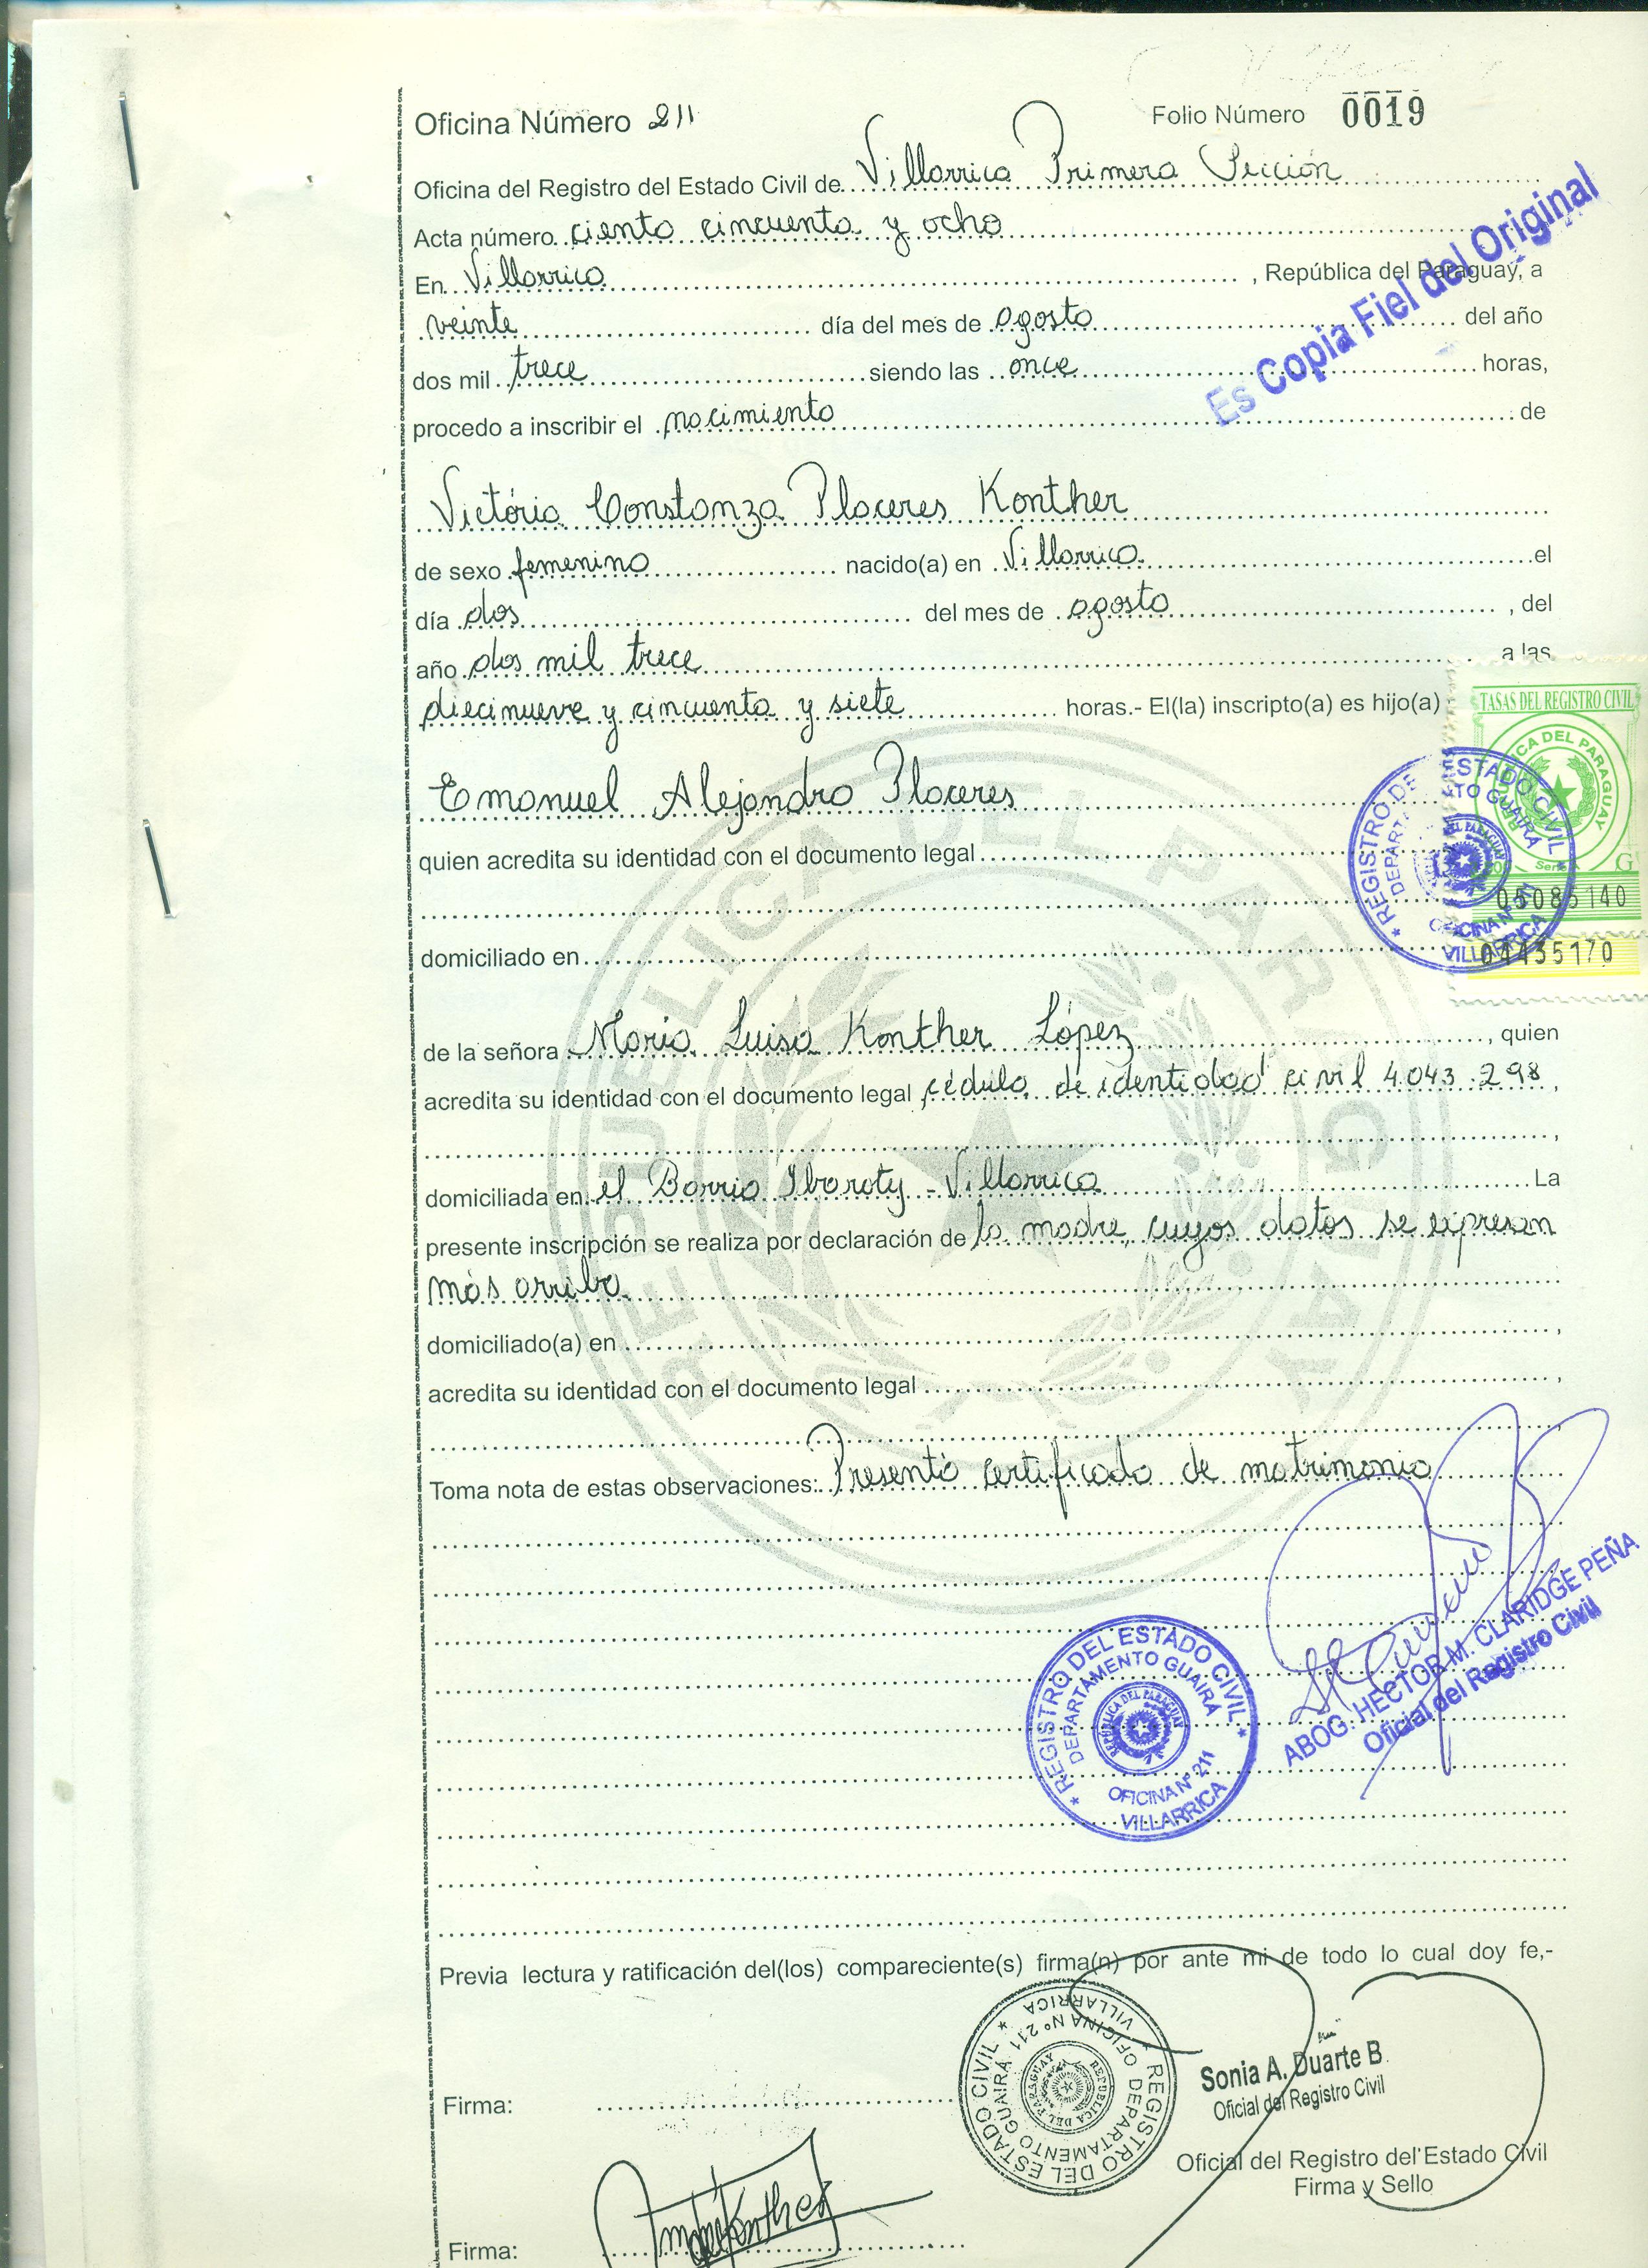 Oficina Número 211
Folio Número 0019
Oficina del Registro del Estado Civil de Villarrica Primera Sección
Acta número ciento cincuenta y ocho
En Villarrica, República del Paraguay, a
veinte día del mes de agosto del año
dos mil trece siendo las once horas,
procedo a inscribir el nacimiento de
Es Copia Fiel del Original
Victória Constanza Placeres Konther
de sexo femenino nacido(a) en Villarrica el
día dos del mes de agosto, del
año dos mil trece a las
diecinueve y cincuenta y siete horas.- El(la) inscripto(a) es hijo(a)
TASAS DEL REGISTRO CIVIL
Emanuel Alejandro Placeres
quien acredita su identidad con el documento legal
REGISTRO DE ESTADO CIVIL
VILLARRICA
04435170
domiciliado en
de la señora Maria Luisa Konther López, quien
acredita su identidad con el documento legal cédula de identidad civil 4.043.298,
domiciliada en el Barrio Ybaroty - Villarrica La
presente inscripción se realiza por declaración de la madre, cuyos datos se expresan
más arriba
domiciliado(a) en ,
acredita su identidad con el documento legal ,
Toma nota de estas observaciones: Presentó certificado de matrimonio
REPUBLICA DEL PARAGUAY
REGISTRO DEL ESTADO CIVIL
DEPARTAMENTO GUAIRA
REPUBLICA DEL PARAGUAY
OFICINA Nº 211
VILLARRICA
ABOG. HECTOR M. CLARIDGE PEÑA
Oficial del Registro Civil
Previa lectura y ratificación del(los) compareciente(s) firma(n) por ante mi de todo lo cual doy fe,-
REGISTRO DEL ESTADO CIVIL
DEPARTAMENTO GUAIRÁ
REPUBLICA DEL PARAGUAY
OFICINA Nº 211
VILLARRICA
Sonia A. Duarte B.
Oficial del Registro Civil
Firma:
Oficial del Registro del Estado Civil
Firma y Sello
Firma: